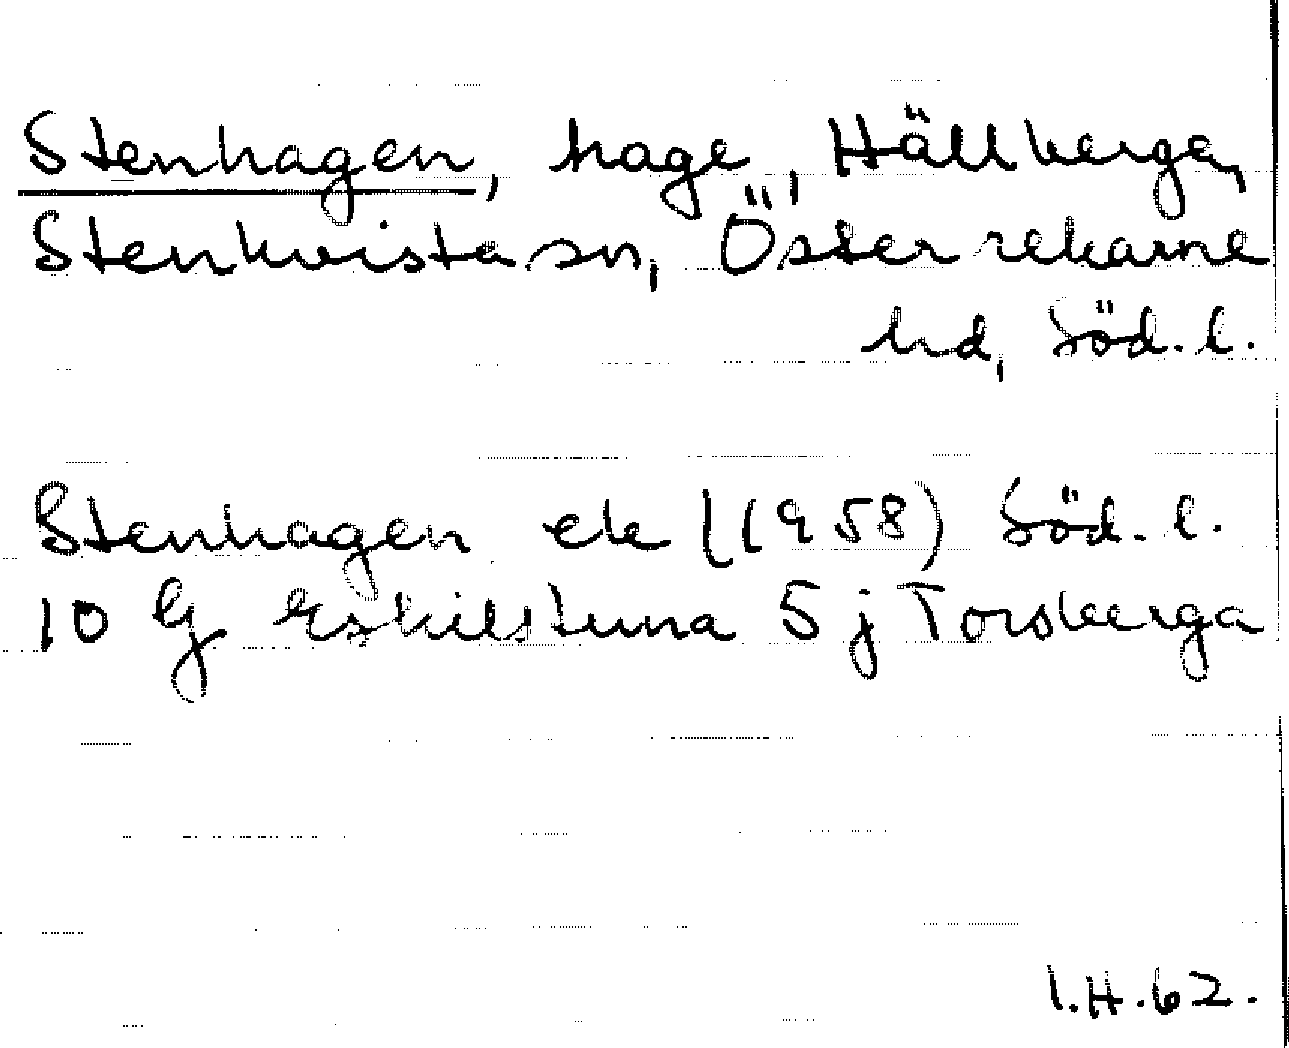 Stenhagen, hage, Hällberga,
Stenkvista sn, Österrekarne
hd, Söd. l.
Stenhagen ek (1958) Söd. l.
10 G Eskilstuna 5 j Torsberga
I.H.62.